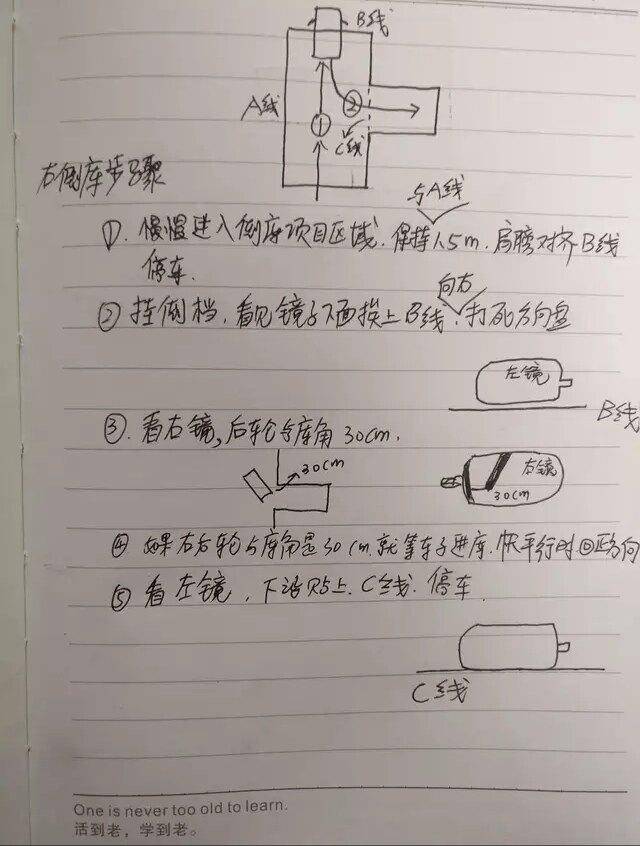 B线
A线
①
②
C线
右倒库步骤
与A线
①. 慢慢进入倒库项目区域. 保持1.5m. 肩膀对齐B线
停车.
向右
②挂倒档. 看见镜子下面挨上B线. 打死方向盘
左镜
B线
③. 看右镜, 后轮与库角30cm.
30cm
右镜
30cm
④ 如果右后轮与库角是30cm. 就等车子进库. 快平行时回正方向
⑤ 看左镜, 下沿贴上C线. 停车
C线
One is never too old to learn.
活到老，学到老。